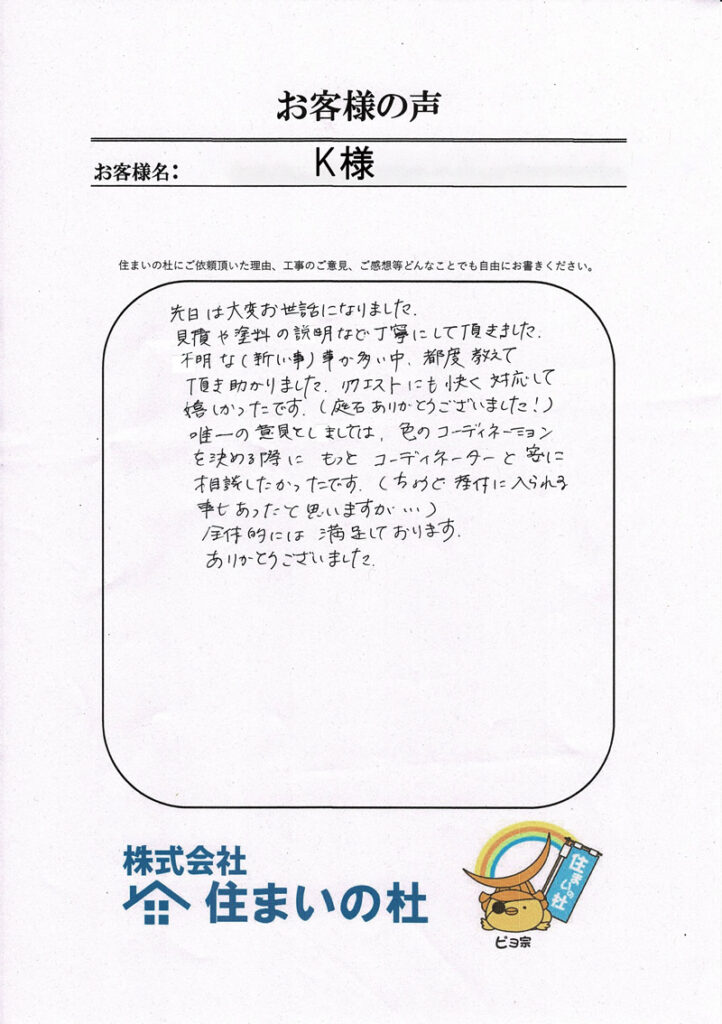 お客様の声
お客様名: K様
住まいの杜にご依頼頂いた理由、工事のご意見、ご感想等どんなことでも自由にお書きください。
先日は大変お世話になりました.
見積や塗料の説明など丁寧にして頂きました.
不明な(新しい事)事が多い中、都度教えて
頂き助かりました. リクエストにも快く対応して
嬉しかったです. (庭石ありがとうございました!)
唯一の意見としましては、色のコーディネーション
を決める際に もっと コーディネーターと 密に
相談したかったです. (ちょうど 産休に入られる
事もあったと思いますが…)
全体的には 満足しております.
ありがとうございました.
株式会社
住まいの杜
住まいの杜
ピヨ宗